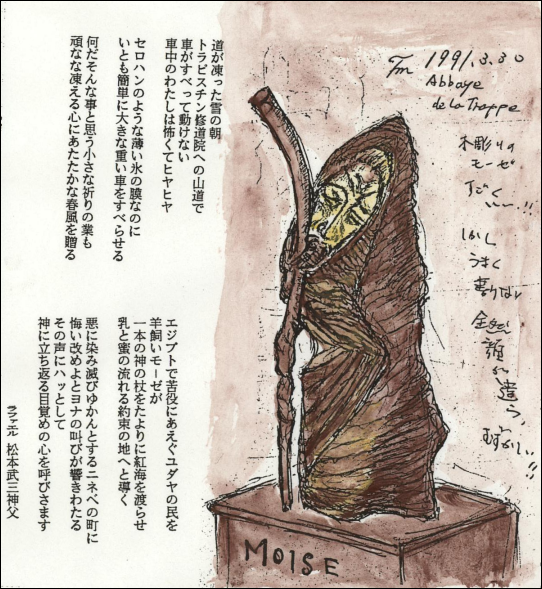 道が凍った雪の朝
トラピスチン修道院への山道で
車がすべって動けない
車中のわたしは怖くてヒヤヒヤ
セロハンのような薄い氷の膜なのに
いとも簡単に大きな重い車をすべらせる
何だそんな事と思う小さな祈りの業も
頑なな凍える心にあたたかな春風を贈る
エジプトで苦役にあえぐユダヤの民を
羊飼いモーゼが
一本の神の杖をたよりに紅海を渡らせ
乳と蜜の流れる約束の地へと導く
悪に染み滅びゆかんとするニネベの町に
悔い改めよとヨナの叫びが響きわたる
その声にハッとして
神に立ち返る目覚めの心を呼びさます
ラファエル 松本武三神父
1991.3.30
Abbaye
de la Trappe
木彫りの
モーゼ
すごく
いい…!!
しかし
うまく
全然
顔が違う、
むずかしい!!
MOISE